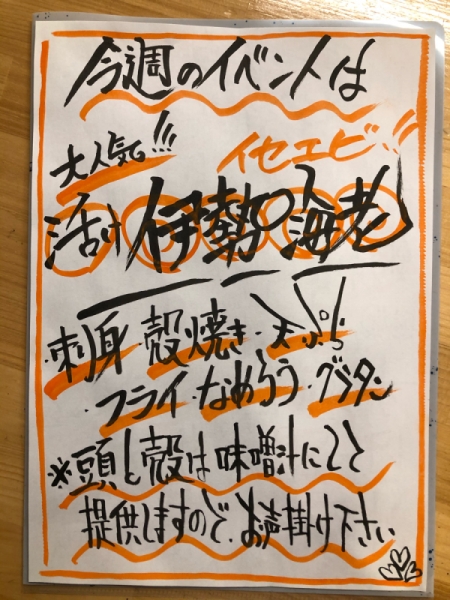 今週のイベントは
大人気!!! イセエビ!!
活け伊勢海老
・刺身・殻焼き・天ぷら
・フライ・なめろう・グラタン
※頭と殻は味噌汁にして
提供しますので、お声掛け下さい